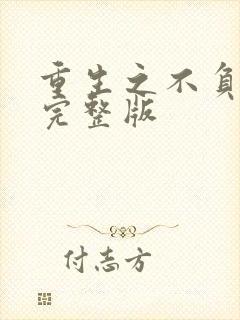 重生之不负
完整版
付志方